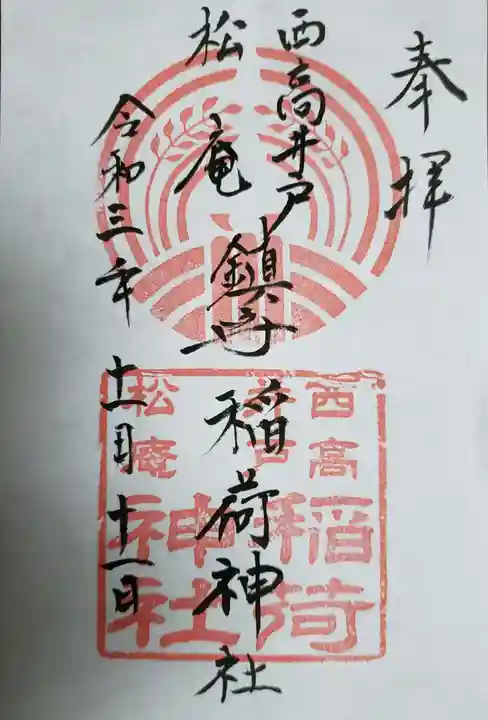 奉拝
西高井戸
松庵
鎮守
稲荷神社
令和三年十一月十一日
西高
井戸
松庵
稲荷
神社